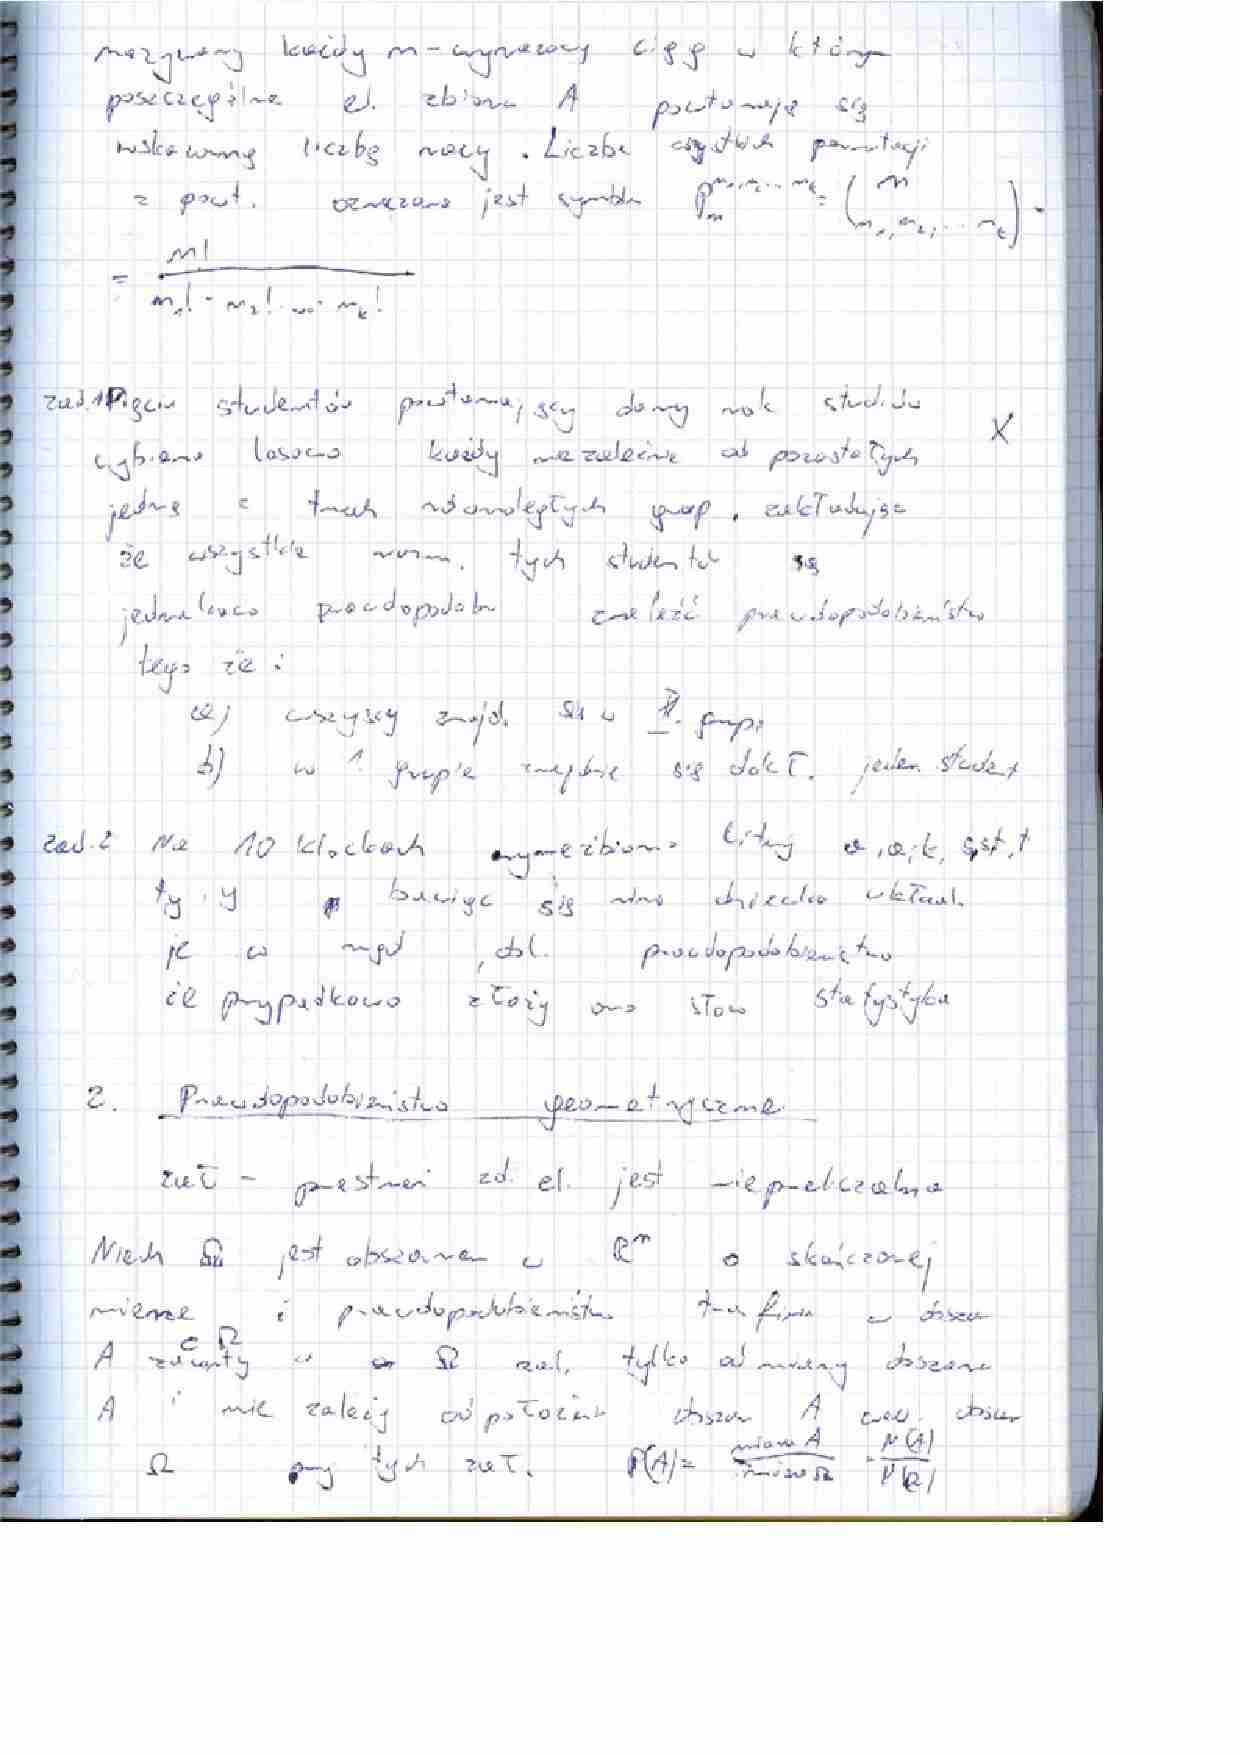 nazywamy każdy n-wyrazowy ciąg w którym
poszczególne el. zbioru A powtarzają się
wskazaną liczbę razy. Liczba wszystkich permutacji
z powt. oznaczana jest symbolem P_n^{n_1, n_2, ... n_k} = \binom{n}{n_1, n_2, ... n_k} =
= \frac{n!}{n_1! · n_2! · ... · n_k!}
zad.1 Pięciu studentów powtarzający dany rok studiów
wybiera losowo każdy niezależnie od pozostałych X
jedną z trzech równoległych grup. zakładając
że wszystkie tych są
jednakowo prawdopodob znaleźć prawdopodobieństwo
tego że:
a) wszyscy znajd. się w I. grupi
b) w 1 grupie znajdzie się dokł. jeden student
zad.2 Na 10 klockach litery a, a, k, s, s, t, t
t, y, y bawiąc się nimi dziecko układ.
je w rząd, obl. prawdopodobieństwo
że przypadkowo złoży ono słowo statystyka
2. Prawdopodobieństwo geometryczne
zał - przestrzeń zd. el. jest nieprzeliczalna
Niech Ω jest obszarem w R^n o skończonej
mierze i prawdopodobieństwo trafienia w obszar
⊂ Ω
A zawarty w Ω zal. tylko od miary obszaru
A i nie zależy od położenia obszaru A wew. obszar
Ω przy tych zał. P(A) = \frac{miara A}{miara Ω} = \frac{μ(A)}{μ(Ω)}